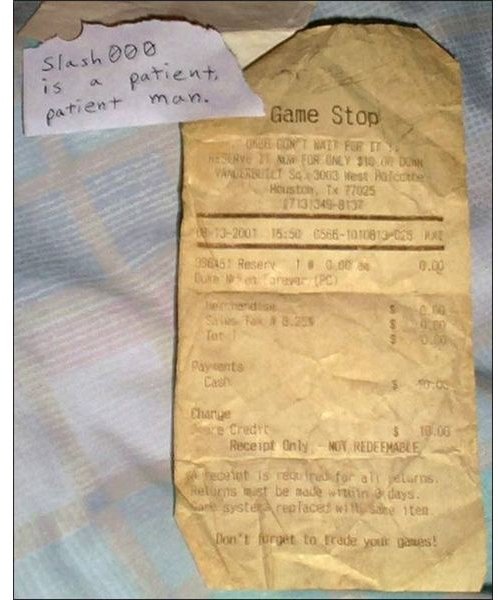 Slash000
is a patient,
patient man.
Game Stop
DON'T WAIT FOR IT !!
RESERVE IT NOW FOR ONLY $10 OR DOWN
VANDERBUILT Sq. 3003 West Holcombe
Houston, Tx 77025
(713)349-8137
08-13-2001 15:50 0566-1010813-025
Reserv 1 @ 0.00 ea 0.00
Duke Nukem Forever (PC)
Merchandise $ 0.00
Sales Tax @ 8.25% $ 0.00
Total $ 0.00
Payments
Cash $ 10.00
Change
Store Credit $ 10.00
Receipt Only - NOT REDEEMABLE
A receipt is required for all returns.
Returns must be made within days.
Game systems replaced with same item
Don't forget to trade your games!